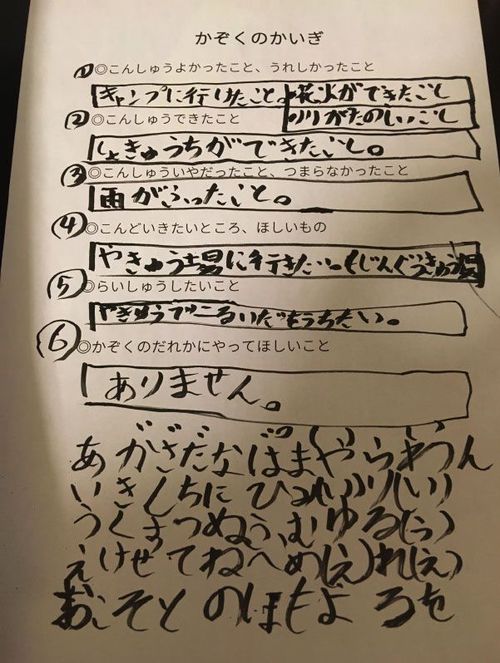 かぞくのかいぎ
①◎こんしゅうよかったこと、うれしかったこと
キャンプに行けたこと。花火ができたこと
のりがたのしいこと
②◎こんしゅうできたこと
しょきゅうちができたこと。
③◎こんしゅういやだったこと、つまらなかったこと
雨がふったこと。
④◎こんどいきたいところ、ほしいもの
やきゅう場に行きたい。(じんぐうきゅう場
⑤◎らいしゅうしたいこと
やきゅうで
うちたい。
⑥◎かぞくのだれかにやってほしいこと
ありません。
あがざだなばまやらわん
いきしちにひみ(い)り(い)
うくすつぬふむゆる(う)
えけせてねへめ(え)れ(え)
おこそとのほもよろを